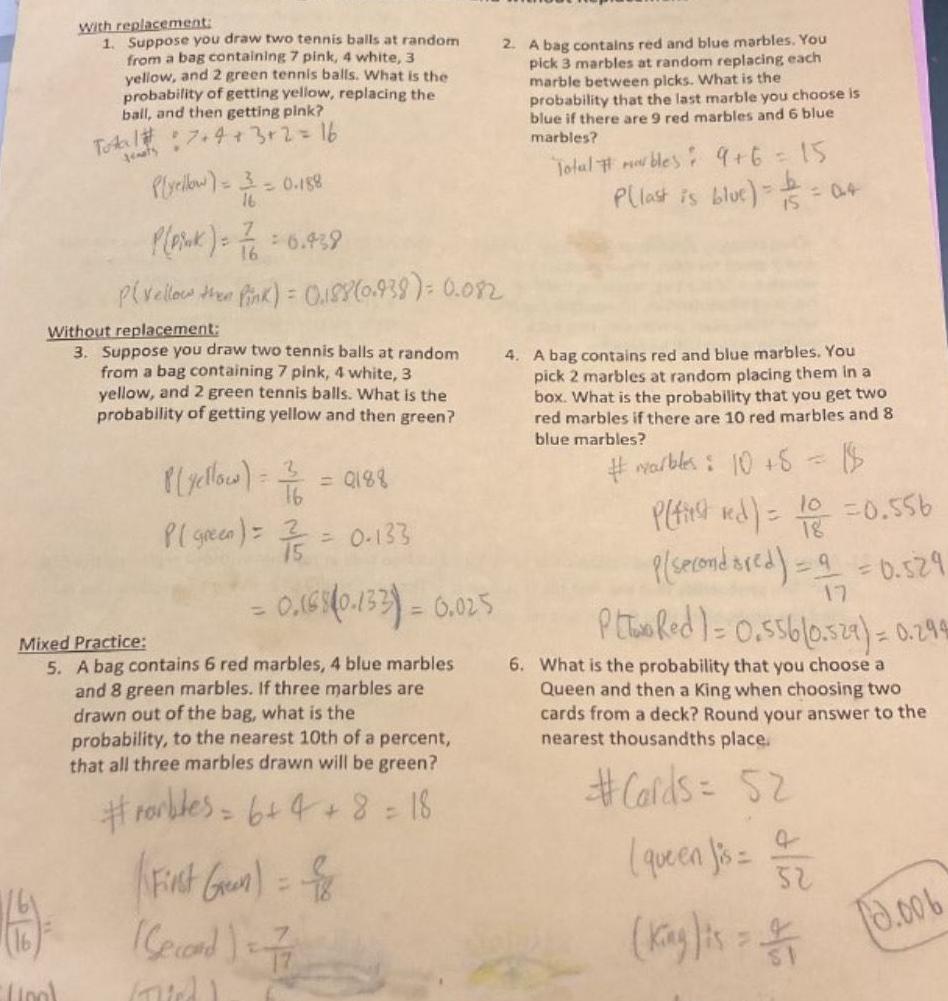 With replacement:
1. Suppose you draw two tennis balls at random
from a bag containing 7 pink, 4 white, 3
yellow, and 2 green tennis balls. What is the
probability of getting yellow, replacing the
ball, and then getting pink?
Total # : 7+4+3+2=16
P(yellow) = 3/16 = 0.188
P(pink) = 7/16 = 0.438
P(yellow then pink) = 0.188(0.938) = 0.082
2. A bag contains red and blue marbles. You
pick 3 marbles at random replacing each
marble between picks. What is the
probability that the last marble you choose is
blue if there are 9 red marbles and 6 blue
marbles?
Total # marbles : 9+6 = 15
P(last is blue) = 6/15 = 0.4
Without replacement:
3. Suppose you draw two tennis balls at random
from a bag containing 7 pink, 4 white, 3
yellow, and 2 green tennis balls. What is the
probability of getting yellow and then green?
P(yellow) = 3/16 = 0.188
P(green) = 2/15 = 0.133
= 0.188(0.133) = 0.025
4. A bag contains red and blue marbles. You
pick 2 marbles at random placing them in a
box. What is the probability that you get two
red marbles if there are 10 red marbles and 8
blue marbles?
# marbles : 10 + 8 = 18
P(first red) = 10/18 = 0.556
P(second is red) = 9/17 = 0.529
P(Two Red) = 0.556(0.529) = 0.294
Mixed Practice:
5. A bag contains 6 red marbles, 4 blue marbles
and 8 green marbles. If three marbles are
drawn out of the bag, what is the
probability, to the nearest 10th of a percent,
that all three marbles drawn will be green?
# marbles = 6+4+8 = 18
(First Green) = 8/18
(Second) = 7/17
(Third)
6. What is the probability that you choose a
Queen and then a King when choosing two
cards from a deck? Round your answer to the
nearest thousandths place.
# Cards = 52
(queen) is = 4/52
(King) is = 4/51
0.006